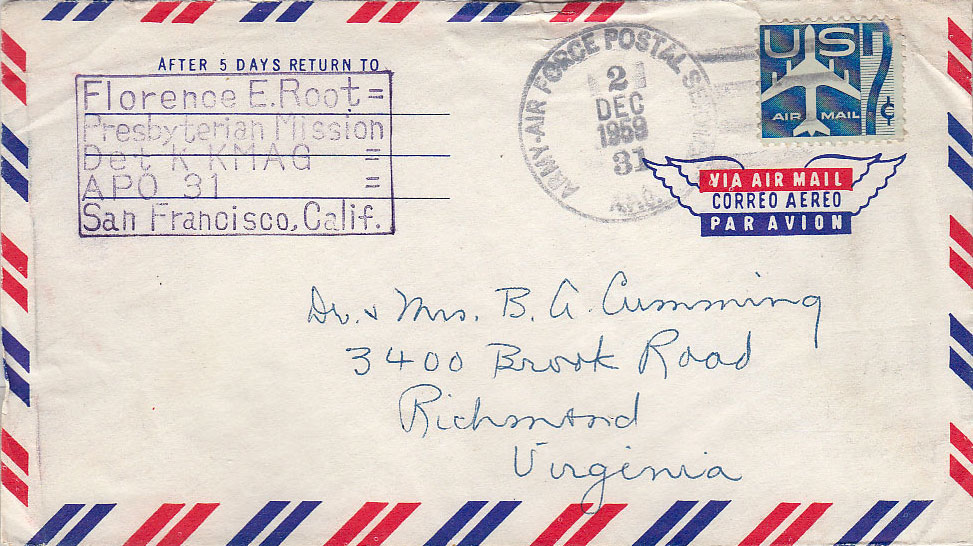 AFTER 5 DAYS RETURN TO
Florence E. Root =
Presbyterian Mission
Det K KMAG =
APO 31 =
San Francisco, Calif.
ARMY-AIR FORCE POSTAL
2
DEC
1959
31
A.P.O.
US
7¢
AIR MAIL
VIA AIR MAIL
CORREO AEREO
PAR AVION
Dr. & Mrs. B. A. Cumming
3400 Brook Road
Richmond
Virginia